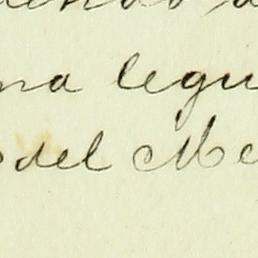 na legu
del Me